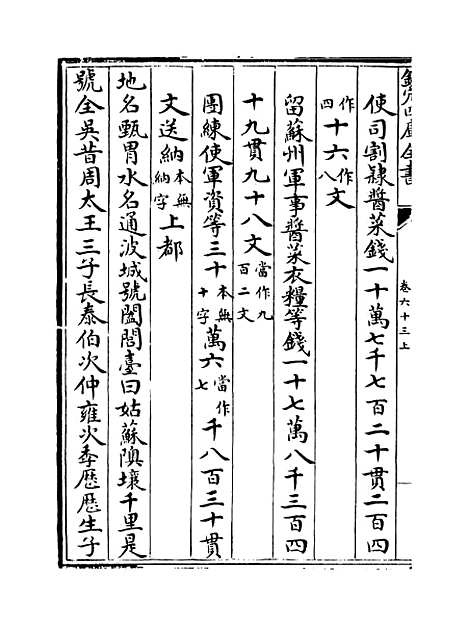 欽定四庫全書
卷六十三上
使司割隸醬菜錢一十萬七千七百二十貫二百四
作四十六作八文
留蘇州軍事醬菜衣糧等錢一十七萬八千三百四
十九貫九十八文當作九百二文
團練使軍資等三十本無十字萬六當作七千八百三十貫
文送納本無納字上都
地名甄胃水名通波城號闔閭臺曰姑蘇隩壤千里是
號全吳昔周太王三子長泰伯次仲雍次季歷歷生子